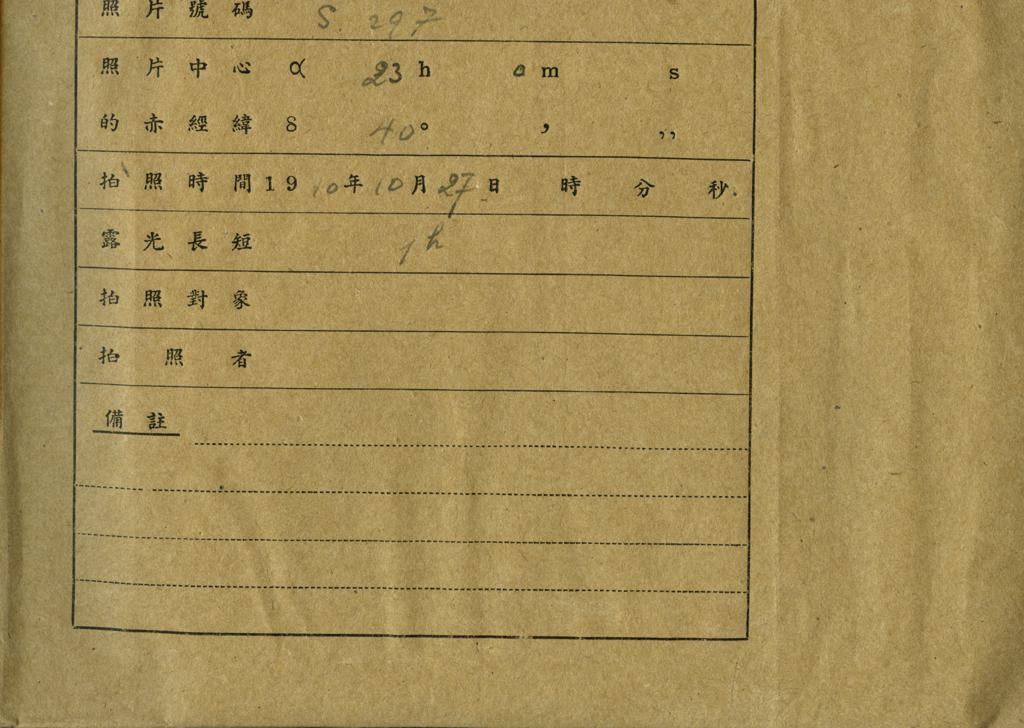 照片號碼 S. 297
照片中心 α 23 h 0 m s
的赤經緯 δ 40° ’ ’’
拍照時間 1910年10月27日 時 分 秒.
露光長短 1h
拍照對象
拍照者
備註